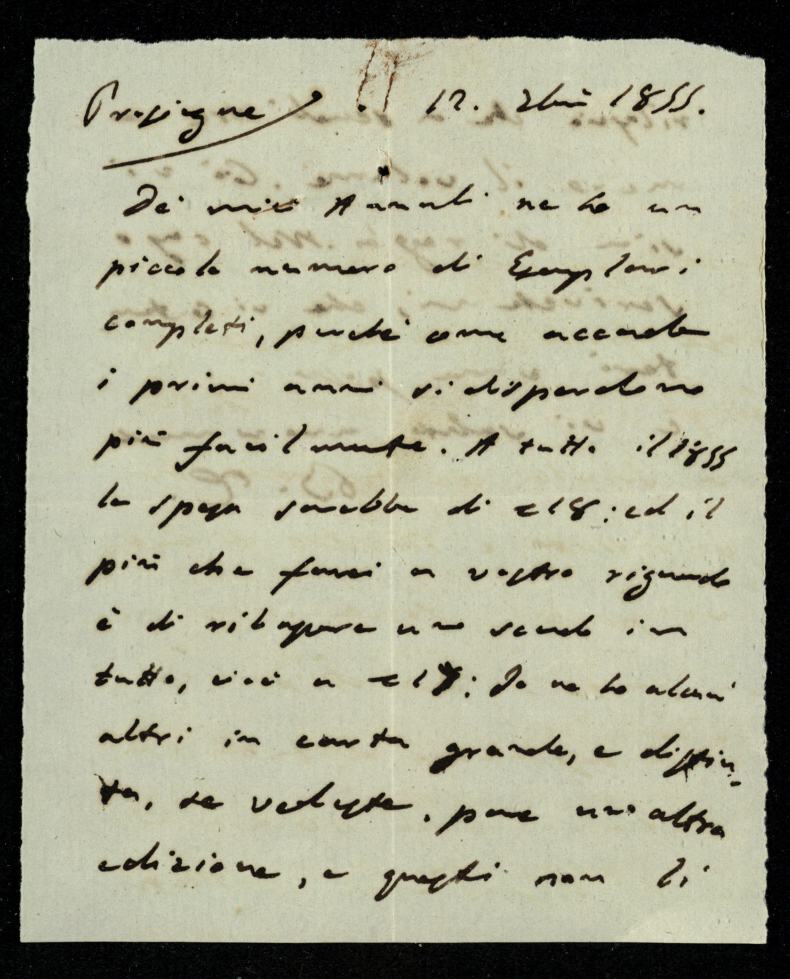 12. 1855.
Dei miei Annali ne ho un
piccolo numero di Esemplari
completi, perchè come accade
i primi anni si disperdono
più facilmente. A tutto il 1855
la spesa sarebbe di 18: ed il
più che farei a vostro riguardo
è di ribassare uno scudo in
tutto, cioè a 17: Io ne ho alcuni
altri in carta grande, e distin-
ta, se vedeste, pare un'altra
edizione, e questi non li